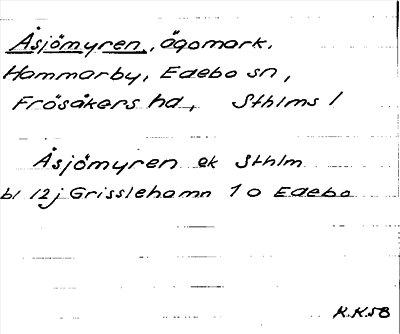 Åsjömyren, ägomark,
Hammarby, Edebo sn,
Frösåkers hd, Sthlms l
Åsjömyren ek Sthlm
bl 12j Grisslehamn 1 o Edebo
K.K.58